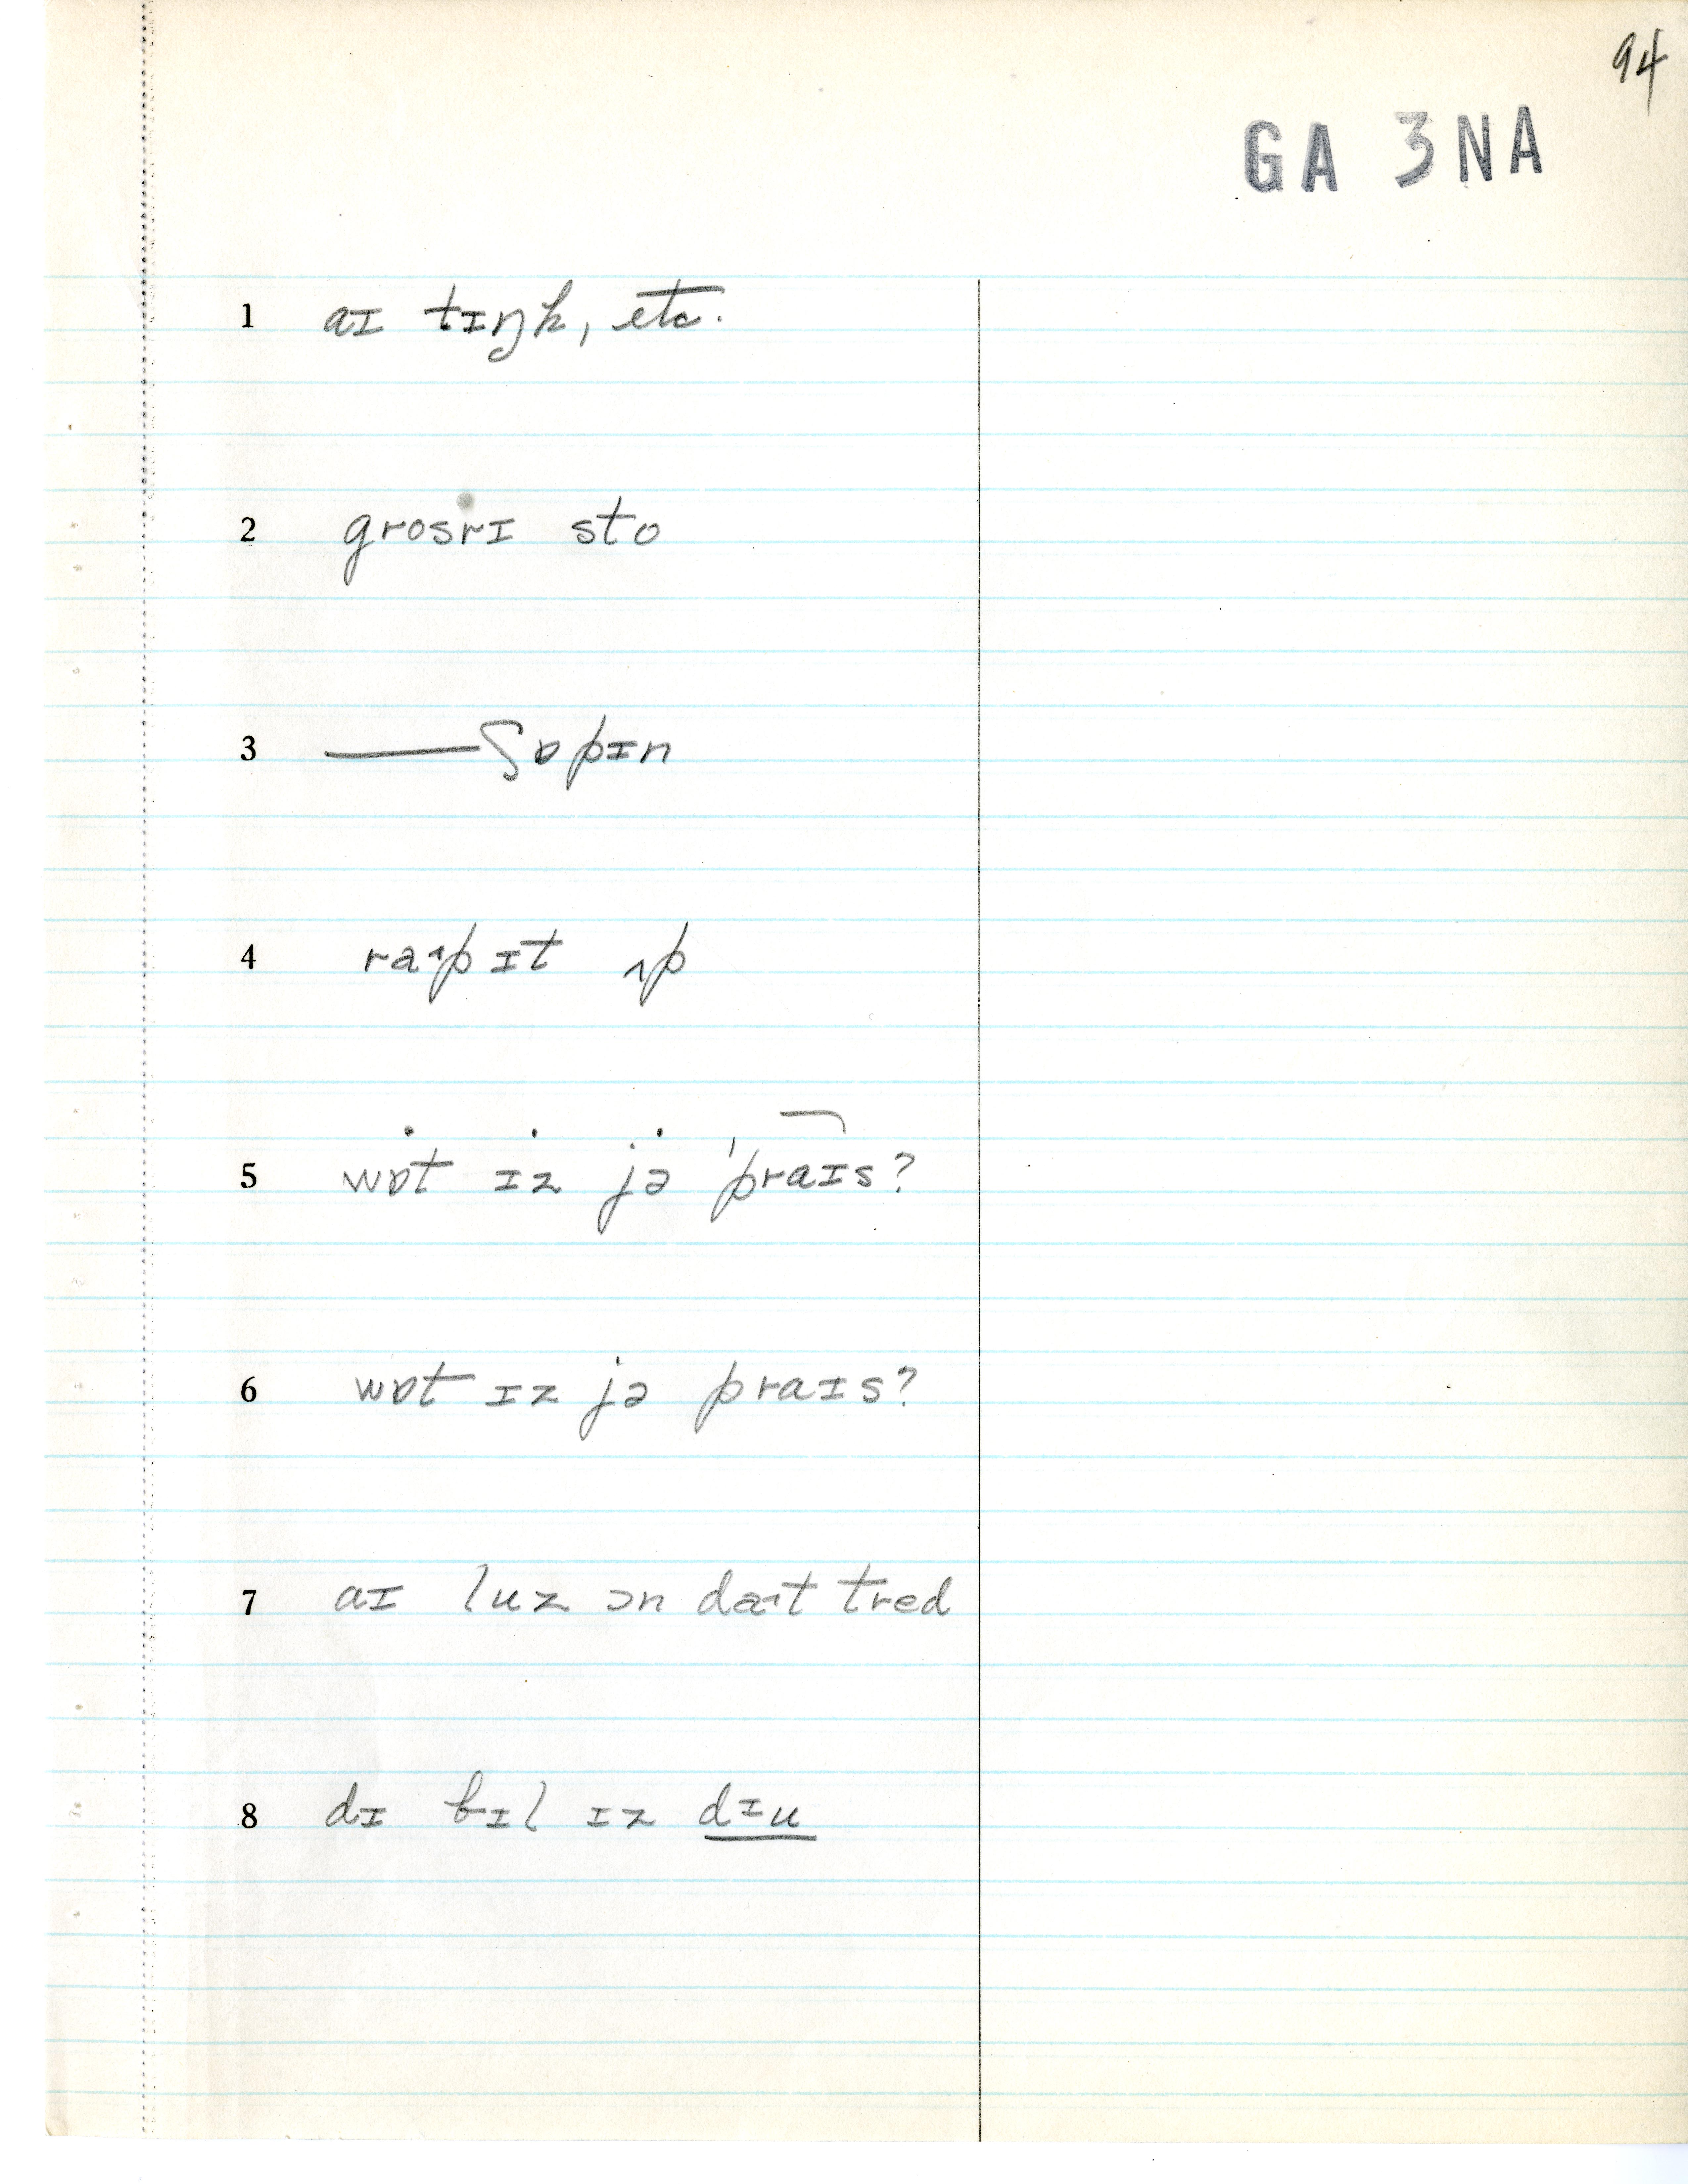 94
GA 3NA
1 aɪ tɪŋk, etc.
2 grosrɪ sto
3 ——ʃɒpɪn
4 raɪp ɪt ʌp
5 wɒt ɪz jə 'praɪs?
6 wɒt ɪz jə praɪs?
7 aɪ luz ɔn daɪt tred
8 dɪ bɪl ɪz dɪu